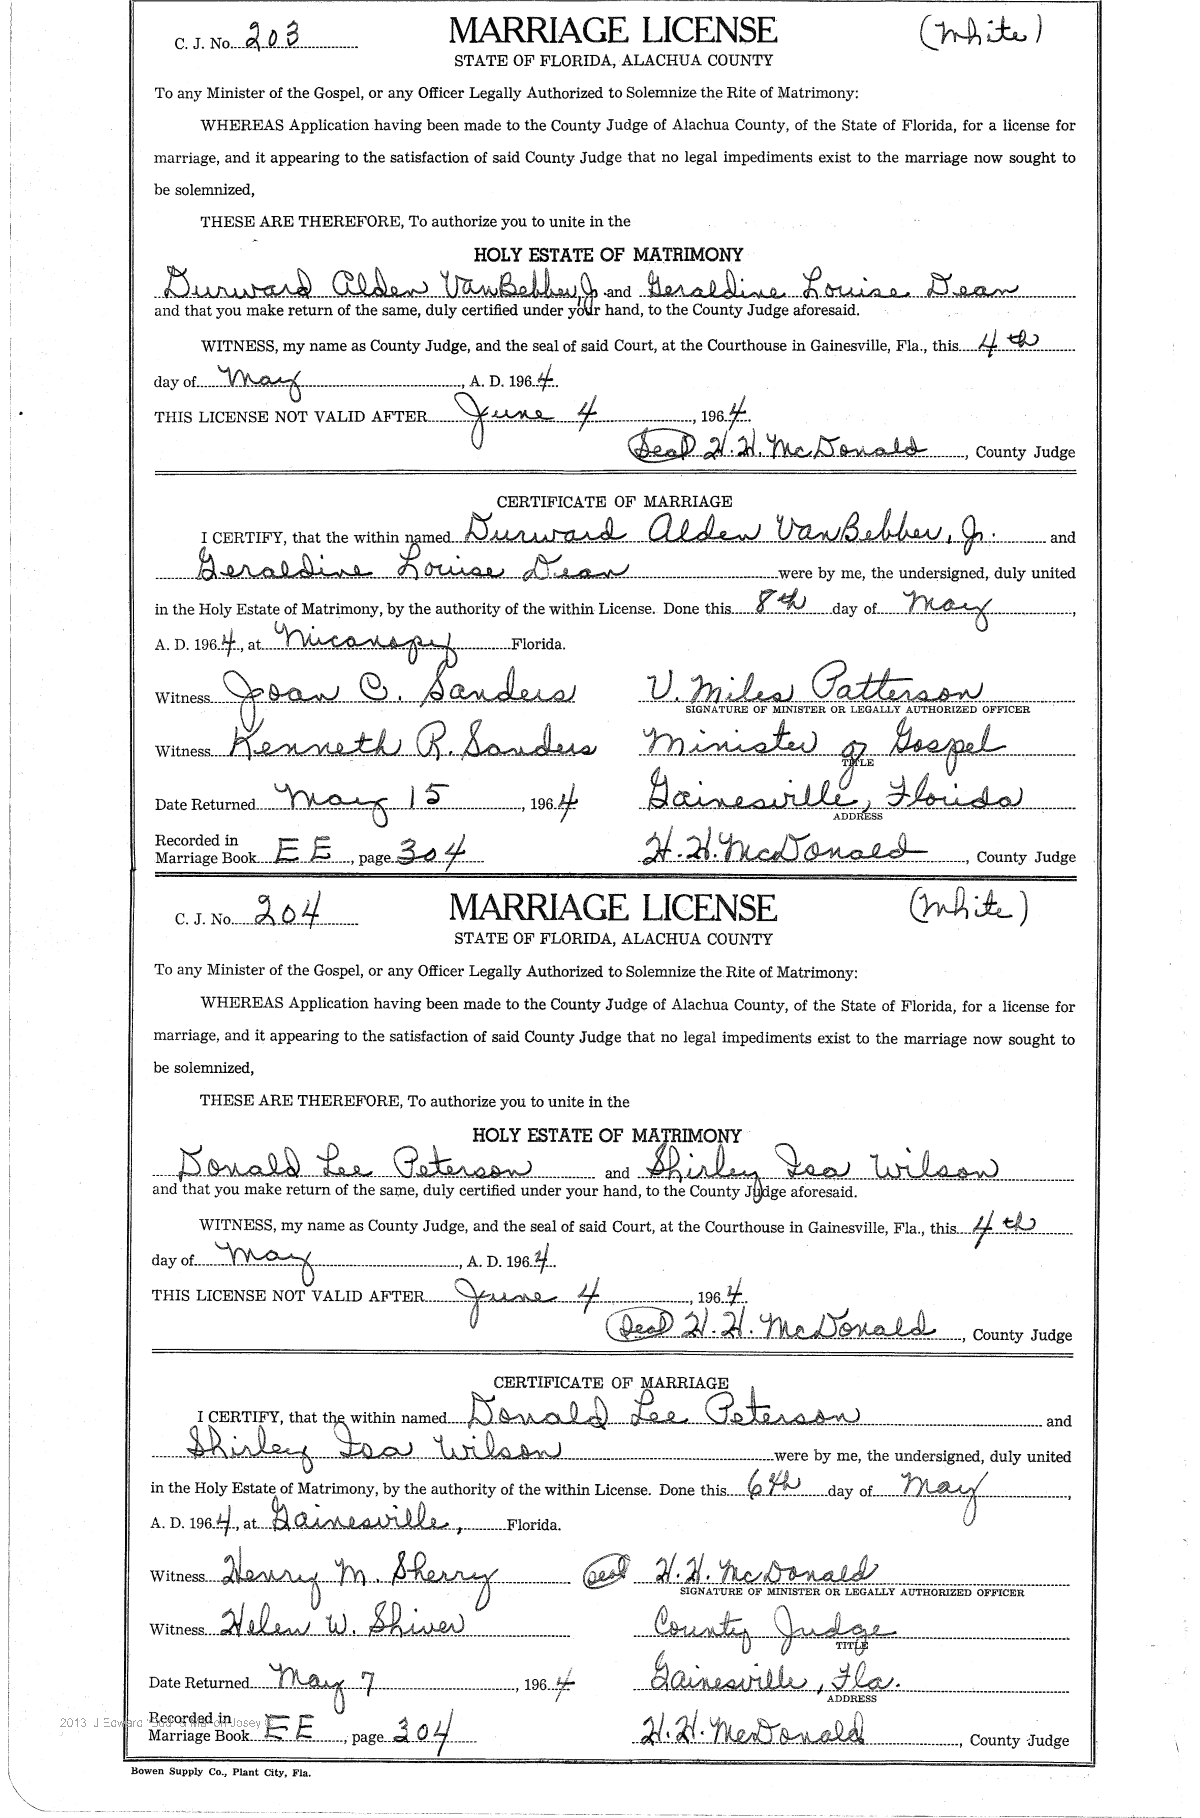 C. J. No. 203 MARRIAGE LICENSE (White)
STATE OF FLORIDA, ALACHUA COUNTY
To any Minister of the Gospel, or any Officer Legally Authorized to Solemnize the Rite of Matrimony:
WHEREAS Application having been made to the County Judge of Alachua County, of the State of Florida, for a license for
marriage, and it appearing to the satisfaction of said County Judge that no legal impediments exist to the marriage now sought to
be solemnized,
THESE ARE THEREFORE, To authorize you to unite in the
HOLY ESTATE OF MATRIMONY
Durward Alden VanBebber, Jr. and Geraldine Louise Dean
and that you make return of the same, duly certified under your hand, to the County Judge aforesaid.
WITNESS, my name as County Judge, and the seal of said Court, at the Courthouse in Gainesville, Fla., this 4th
day of May, A. D. 1964.
THIS LICENSE NOT VALID AFTER June 4, 1964.
(Seal) H. H. McDonald, County Judge
CERTIFICATE OF MARRIAGE
I CERTIFY, that the within named Durward Alden VanBebber, Jr. and
Geraldine Louise Dean were by me, the undersigned, duly united
in the Holy Estate of Matrimony, by the authority of the within License. Done this 8th day of May,
A. D. 1964, at Micanopy Florida.
Witness Joan C. Sanders V. Miles Patterson
SIGNATURE OF MINISTER OR LEGALLY AUTHORIZED OFFICER
Witness Kenneth R. Sanders Minister of Gospel
TITLE
Date Returned May 15, 1964 Gainesville, Florida
ADDRESS
Recorded in
Marriage Book EE, page 304 H. H. McDonald, County Judge
C. J. No. 204 MARRIAGE LICENSE (White)
STATE OF FLORIDA, ALACHUA COUNTY
To any Minister of the Gospel, or any Officer Legally Authorized to Solemnize the Rite of Matrimony:
WHEREAS Application having been made to the County Judge of Alachua County, of the State of Florida, for a license for
marriage, and it appearing to the satisfaction of said County Judge that no legal impediments exist to the marriage now sought to
be solemnized,
THESE ARE THEREFORE, To authorize you to unite in the
HOLY ESTATE OF MATRIMONY
Donald Lee Peterson and Shirley Isa Wilson
and that you make return of the same, duly certified under your hand, to the County Judge aforesaid.
WITNESS, my name as County Judge, and the seal of said Court, at the Courthouse in Gainesville, Fla., this 4th
day of May, A. D. 1964.
THIS LICENSE NOT VALID AFTER June 4, 1964.
(Seal) H. H. McDonald, County Judge
CERTIFICATE OF MARRIAGE
I CERTIFY, that the within named Donald Lee Peterson and
Shirley Isa Wilson were by me, the undersigned, duly united
in the Holy Estate of Matrimony, by the authority of the within License. Done this 6th day of May,
A. D. 1964, at Gainesville, Florida.
Witness Henry M. Sherry (Seal) H. H. McDonald
SIGNATURE OF MINISTER OR LEGALLY AUTHORIZED OFFICER
Witness Helen W. Shiver County Judge
TITLE
Date Returned May 7, 1964 Gainesville, Fla.
ADDRESS
Recorded in
2013 J Edward Josey
Marriage Book EE, page 304 H. H. McDonald, County Judge
Bowen Supply Co., Plant City, Fla.